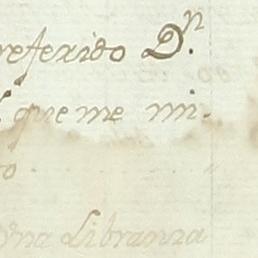 referido D.n
que me mi-
to
Una Libranza